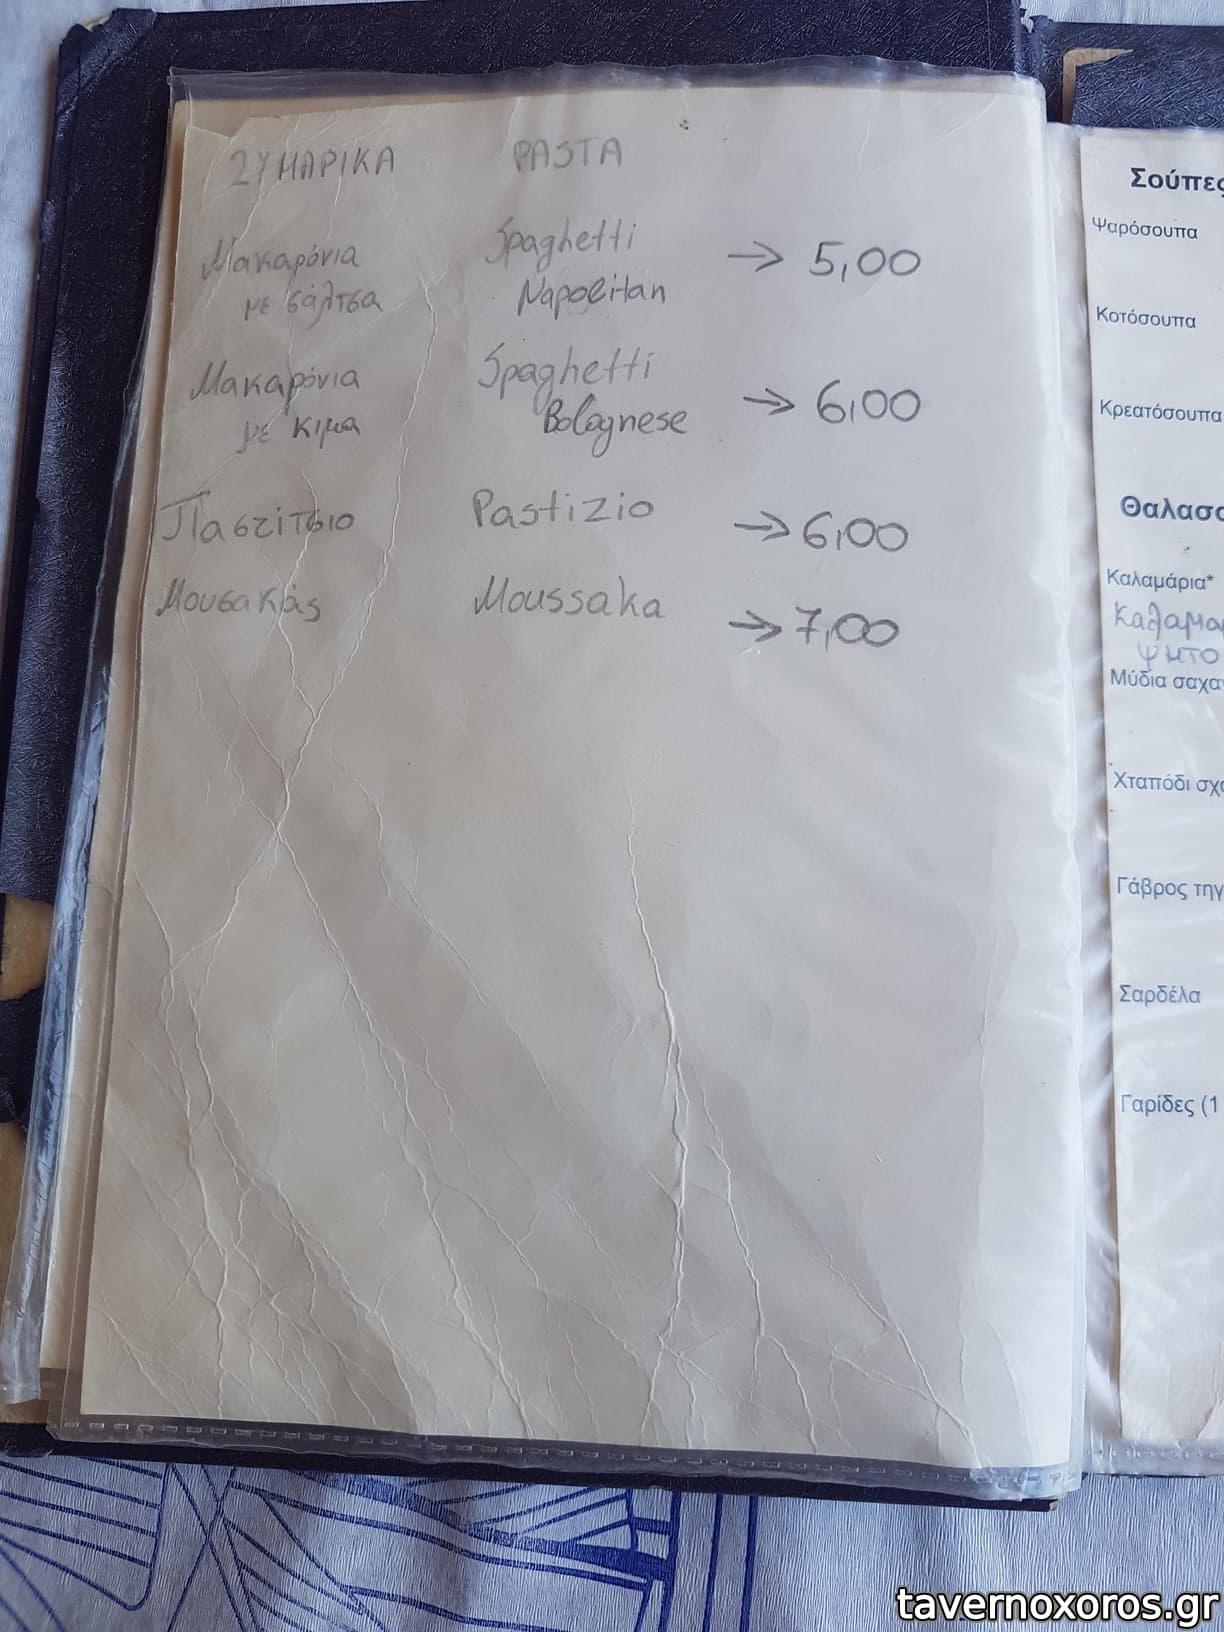 ΖΥΜΑΡΙΚΑ PASTA
Μακαρόνια Spaghetti → 5,00
με σάλτσα Napolitan
Μακαρόνια Spaghetti → 6,00
με κιμα Bolognese
Παστίτσιο Pastizio → 6,00
Μουσακάς Moussaka → 7,00
Σούπες
Ψαρόσουπα
Κοτόσουπα
Κρεατόσουπα
Θαλασσ
Καλαμάρια*
Καλαμα
ψητο
Μύδια σαχα
Χταπόδι σχ
Γάβρος τηγ
Σαρδέλα
Γαρίδες (1
tavernoxoros.gr